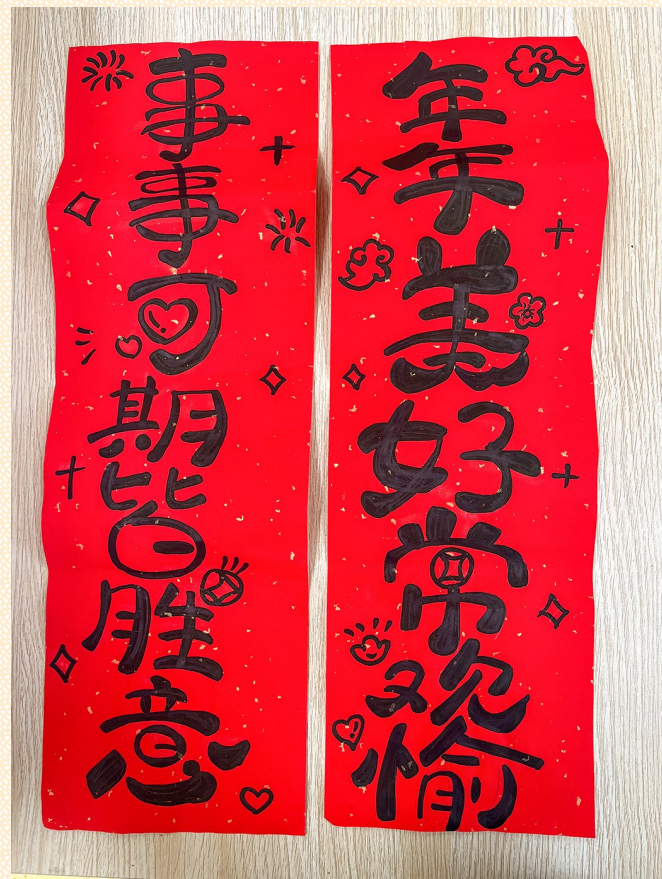 年年美好常欢愉
事事可期皆胜意